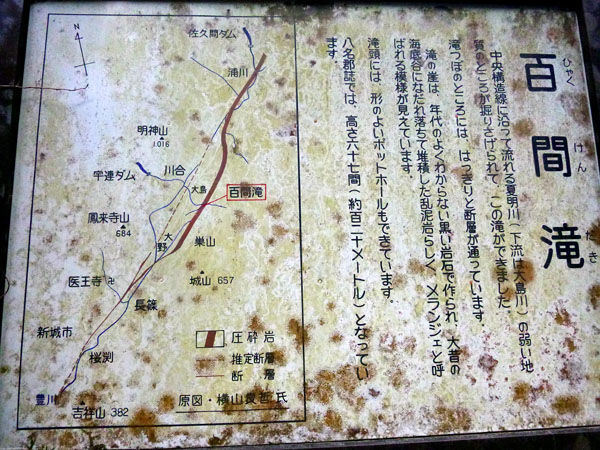 百間滝
ひゃく けん だき
中央構造線に沿って流れる夏明川（下流は大島川）の弱い地
質のところが掘りさげられて、この滝ができました。
滝つぼのところには、はっきりと断層が通っています。
滝の崖は、年代のよくわからない黒い岩石で作られ、大昔の
海底谷になだれ落ちて堆積した乱泥岩らしく、メランジェと呼
ばれる模様が見えています。
滝頭には、形のよいポットホールもできています。
八名郡誌では、高さ六十七間（約百二十メートル）となってい
ます。
N
佐久間ダム
浦川
明神山
1016
宇連ダム
川合
大島
百間滝
鳳来寺山
684
大野
巣山
医王寺卍
城山 657
長篠
新城市
桜渕
豊川
吉祥山 382
圧砕岩
推定断層
断層
原図・横山良哲氏